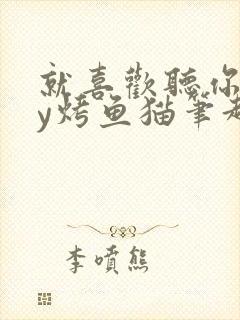 就喜歡聽你
y烤鱼猫筆趣
李噴熊